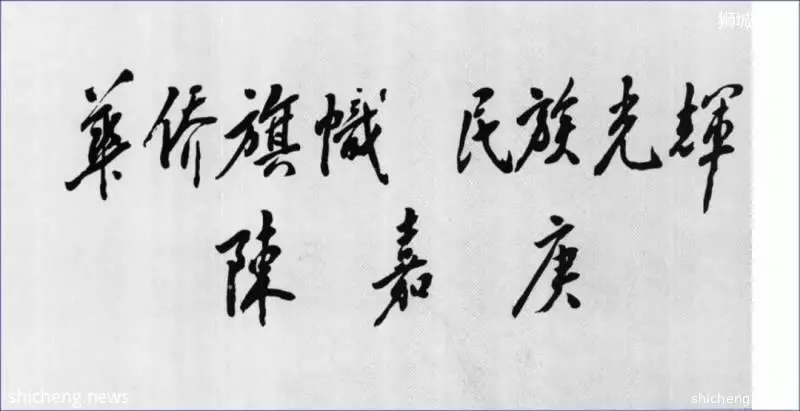 狮城
華侨旗幟 民族光輝
陳嘉庚
shicheng.news
shicheng